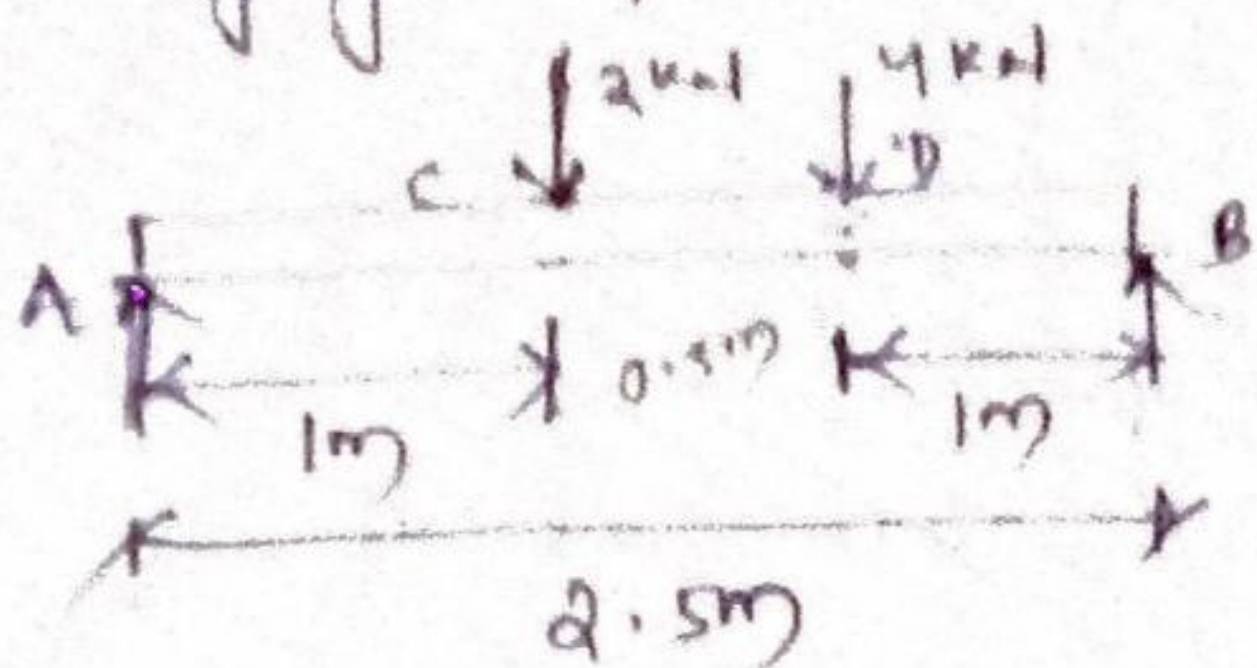 2kN 4kN
C D
A B
1m 0.5m 1m
2.5m